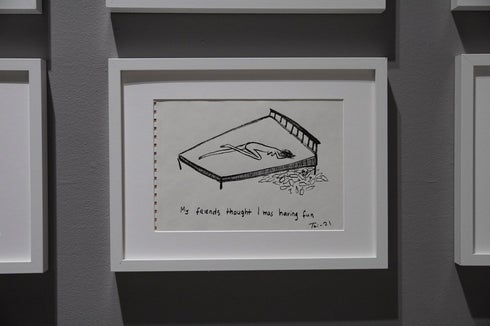 My friends thought I was having fun